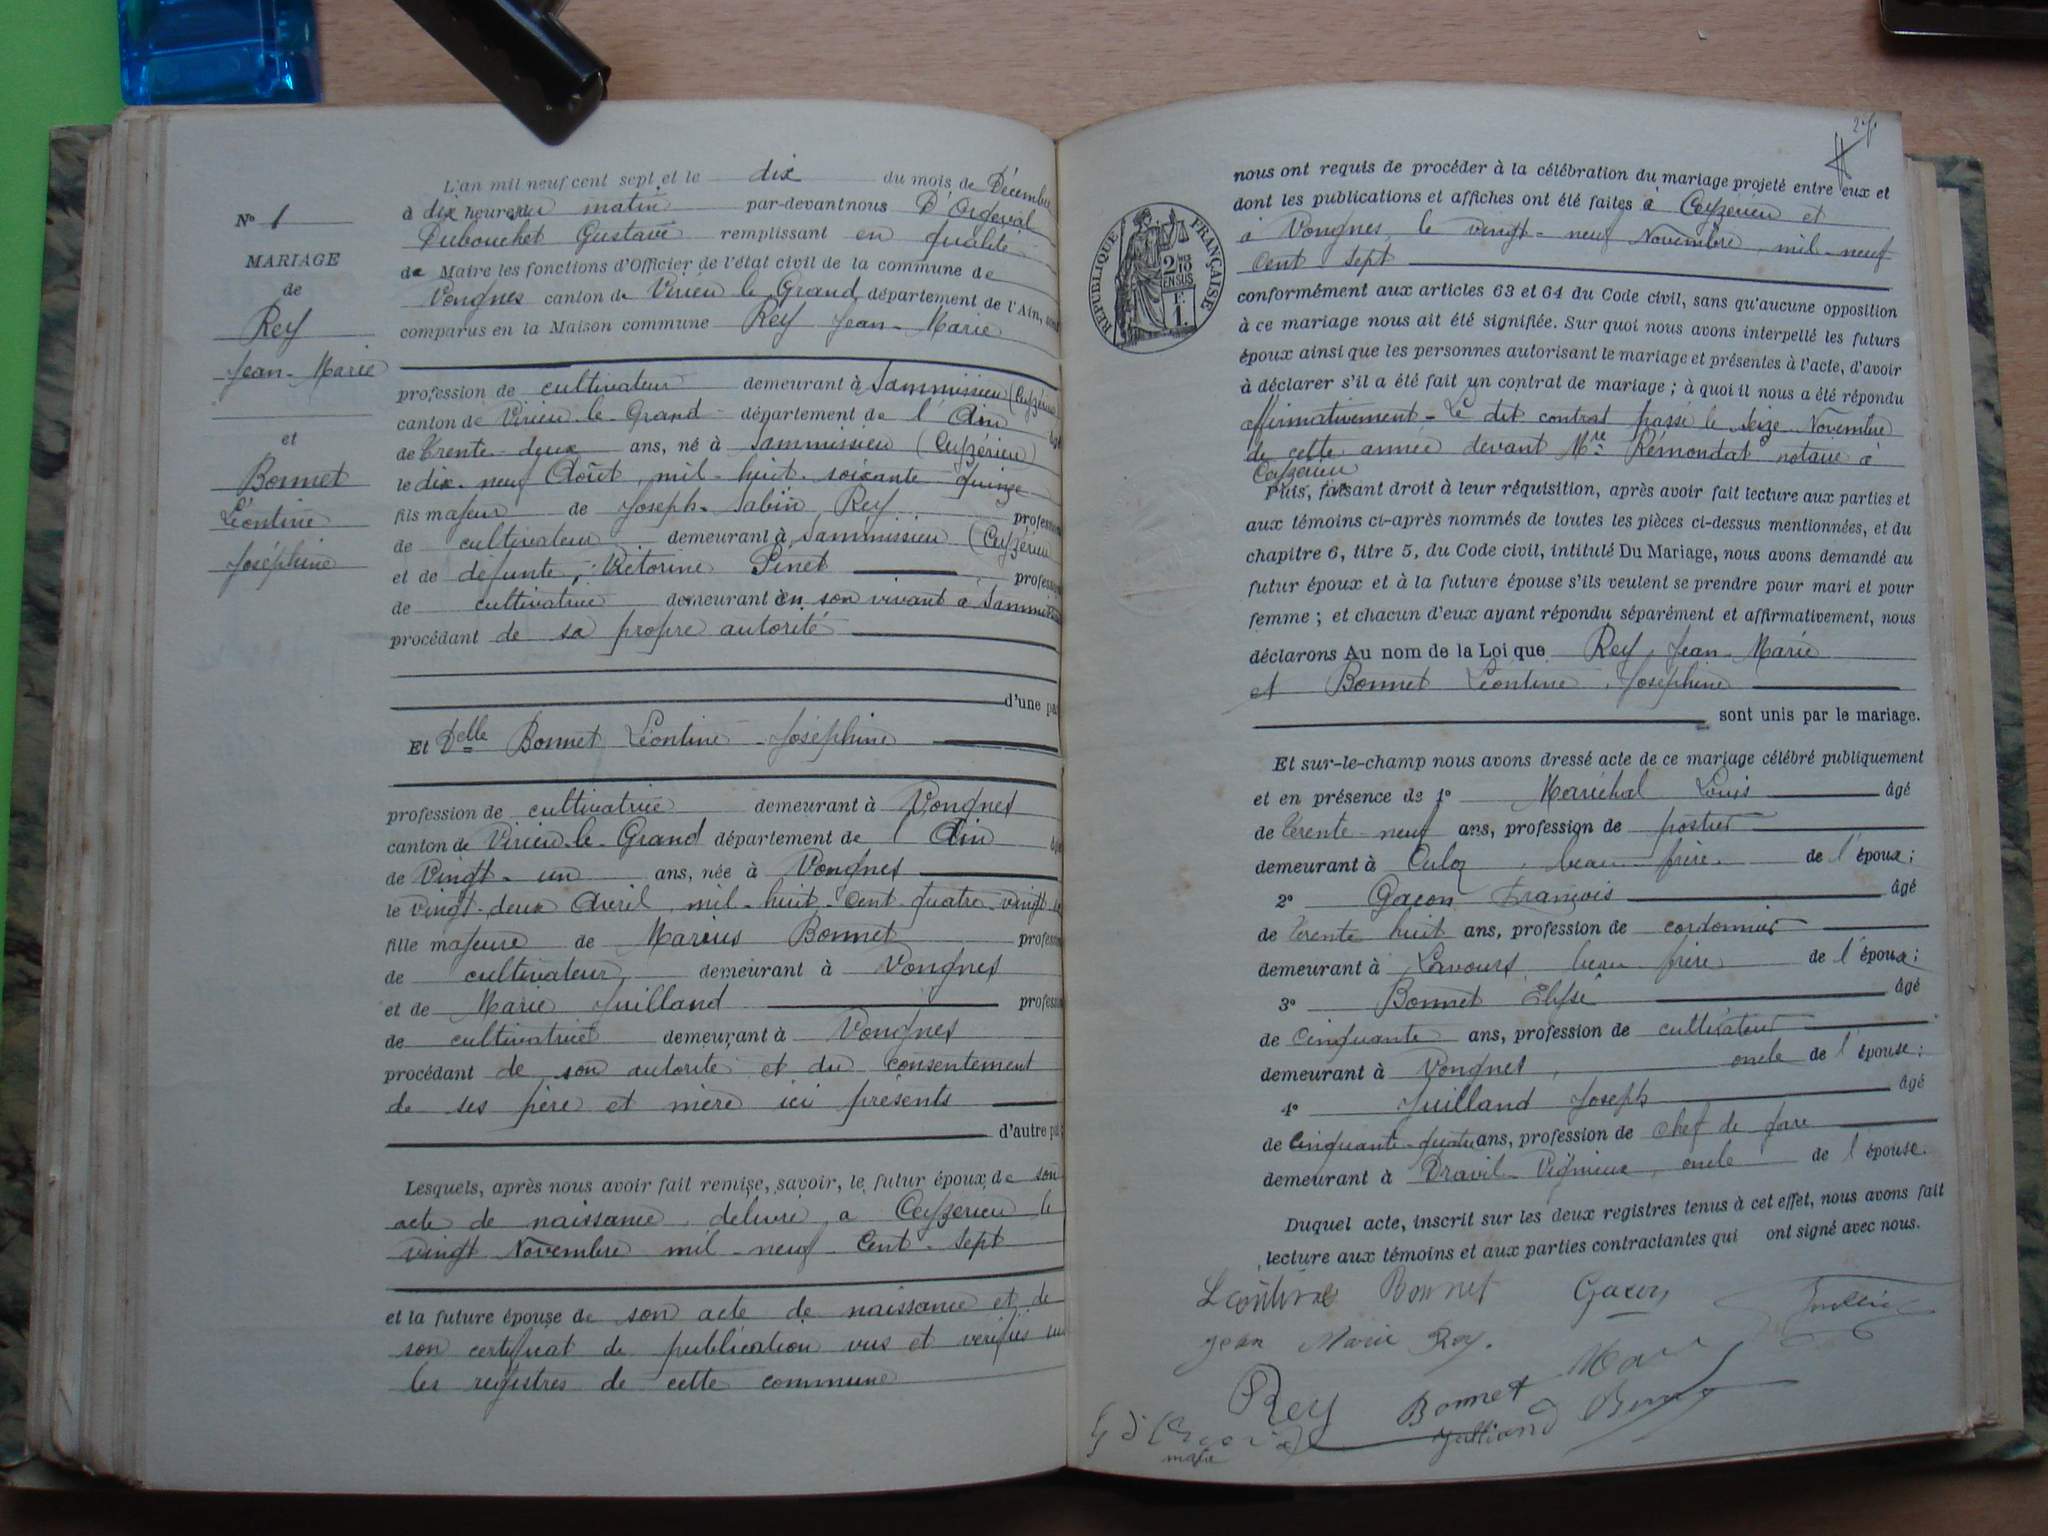 N° 1
MARIAGE
de
Rey
Jean-Marie
et
Bonnet
Léontine
Joséphine
L'an mil neuf cent sept et le dix du mois de Décembre
à dix heures du matin par-devant nous D'Ordeval
Dubouchet Gustave remplissant en qualité
de Maire les fonctions d'Officier de l'état civil de la commune de
Vongnes canton de Virieu le Grand département de l'Ain, sont
comparus en la Maison commune Rey Jean-Marie
profession de cultivateur demeurant à Sammissieu (Ceyzérieu
canton de Virieu-le-Grand département de l'Ain âgé
de trente-deux ans, né à Sammissieu (Ceyzérieu)
le dix-neuf Août mil-huit-soixante-quinze
fils majeur de Joseph-Sabin Rey profession
de cultivateur demeurant à Sammissieu (Ceyzérieu
et de défunte Victorine Pinet profession
de cultivatrice demeurant en son vivant à Sammissieu
procédant de sa propre autorité
d'une pa
Et Delle Bonnet Léontine-Joséphine
profession de cultivatrice demeurant à Vongnes
canton de Virieu-le-Grand département de l'Ain âgé
de Vingt-un ans, née à Vongnes
le vingt-deux Avril mil-huit-cent-quatre-vingt-
fille majeure de Marius Bonnet profession
de cultivateur demeurant à Vongnes
et de Marie Juilland profession
de cultivatrice demeurant à Vongnes
procédant de son autorité et du consentement
de ses père et mère ici présents
d'autre pa
Lesquels, après nous avoir fait remise, savoir, le futur époux de son
acte de naissance délivré à Ceyzérieu le
vingt Novembre mil-neuf-cent-sept
et la future épouse de son acte de naissance et de
son certificat de publication vus et vérifiés sur
les registres de cette commune
nous ont requis de procéder à la célébration du mariage projeté entre eux et
dont les publications et affiches ont été faites à Ceyzérieu et
à Vongnes, le vingt-neuf Novembre mil-neuf
cent sept
RÉPUBLIQUE FRANÇAISE
conformément aux articles 63 et 64 du Code civil, sans qu'aucune opposition
à ce mariage nous ait été signifiée. Sur quoi nous avons interpellé les futurs
époux ainsi que les personnes autorisant le mariage et présentes à l'acte, d'avoir
à déclarer s'il a été fait un contrat de mariage ; à quoi il nous a été répondu
affirmativement - Le dit contrat passé le seize Novembre
de cette année devant Mre Rémondat notaire à
Ceyzérieu
Puis, faisant droit à leur réquisition, après avoir fait lecture aux parties et
aux témoins ci-après nommés de toutes les pièces ci-dessus mentionnées, et du
chapitre 6, titre 5, du Code civil, intitulé Du Mariage, nous avons demandé au
futur époux et à la future épouse s'ils veulent se prendre pour mari et pour
femme ; et chacun d'eux ayant répondu séparément et affirmativement, nous
déclarons Au nom de la Loi que Rey Jean-Marie
et Bonnet Léontine Joséphine
sont unis par le mariage.
Et sur-le-champ nous avons dressé acte de ce mariage célébré publiquement
et en présence de 1° Maréchal Louis âgé
de trente-neuf ans, profession de postier
demeurant à Culoz, beau frère de l'époux ;
2° Gacon François âgé
de trente huit ans, profession de cordonnier
demeurant à Lavours, beau frère de l'époux ;
3° Bonnet Elysé âgé
de cinquante ans, profession de cultivateur
demeurant à Vongnes, oncle de l'épouse ;
4° Juilland Joseph âgé
de cinquante-quatre ans, profession de chef de gare
demeurant à Dravil-Vigneux, oncle de l'épouse.
Duquel acte, inscrit sur les deux registres tenus à cet effet, nous avons fait
lecture aux témoins et aux parties contractantes qui ont signé avec nous.
Léontine Bonnet Gacon
Jean Marie Rey.
Rey Bonnet
Juilland
maire